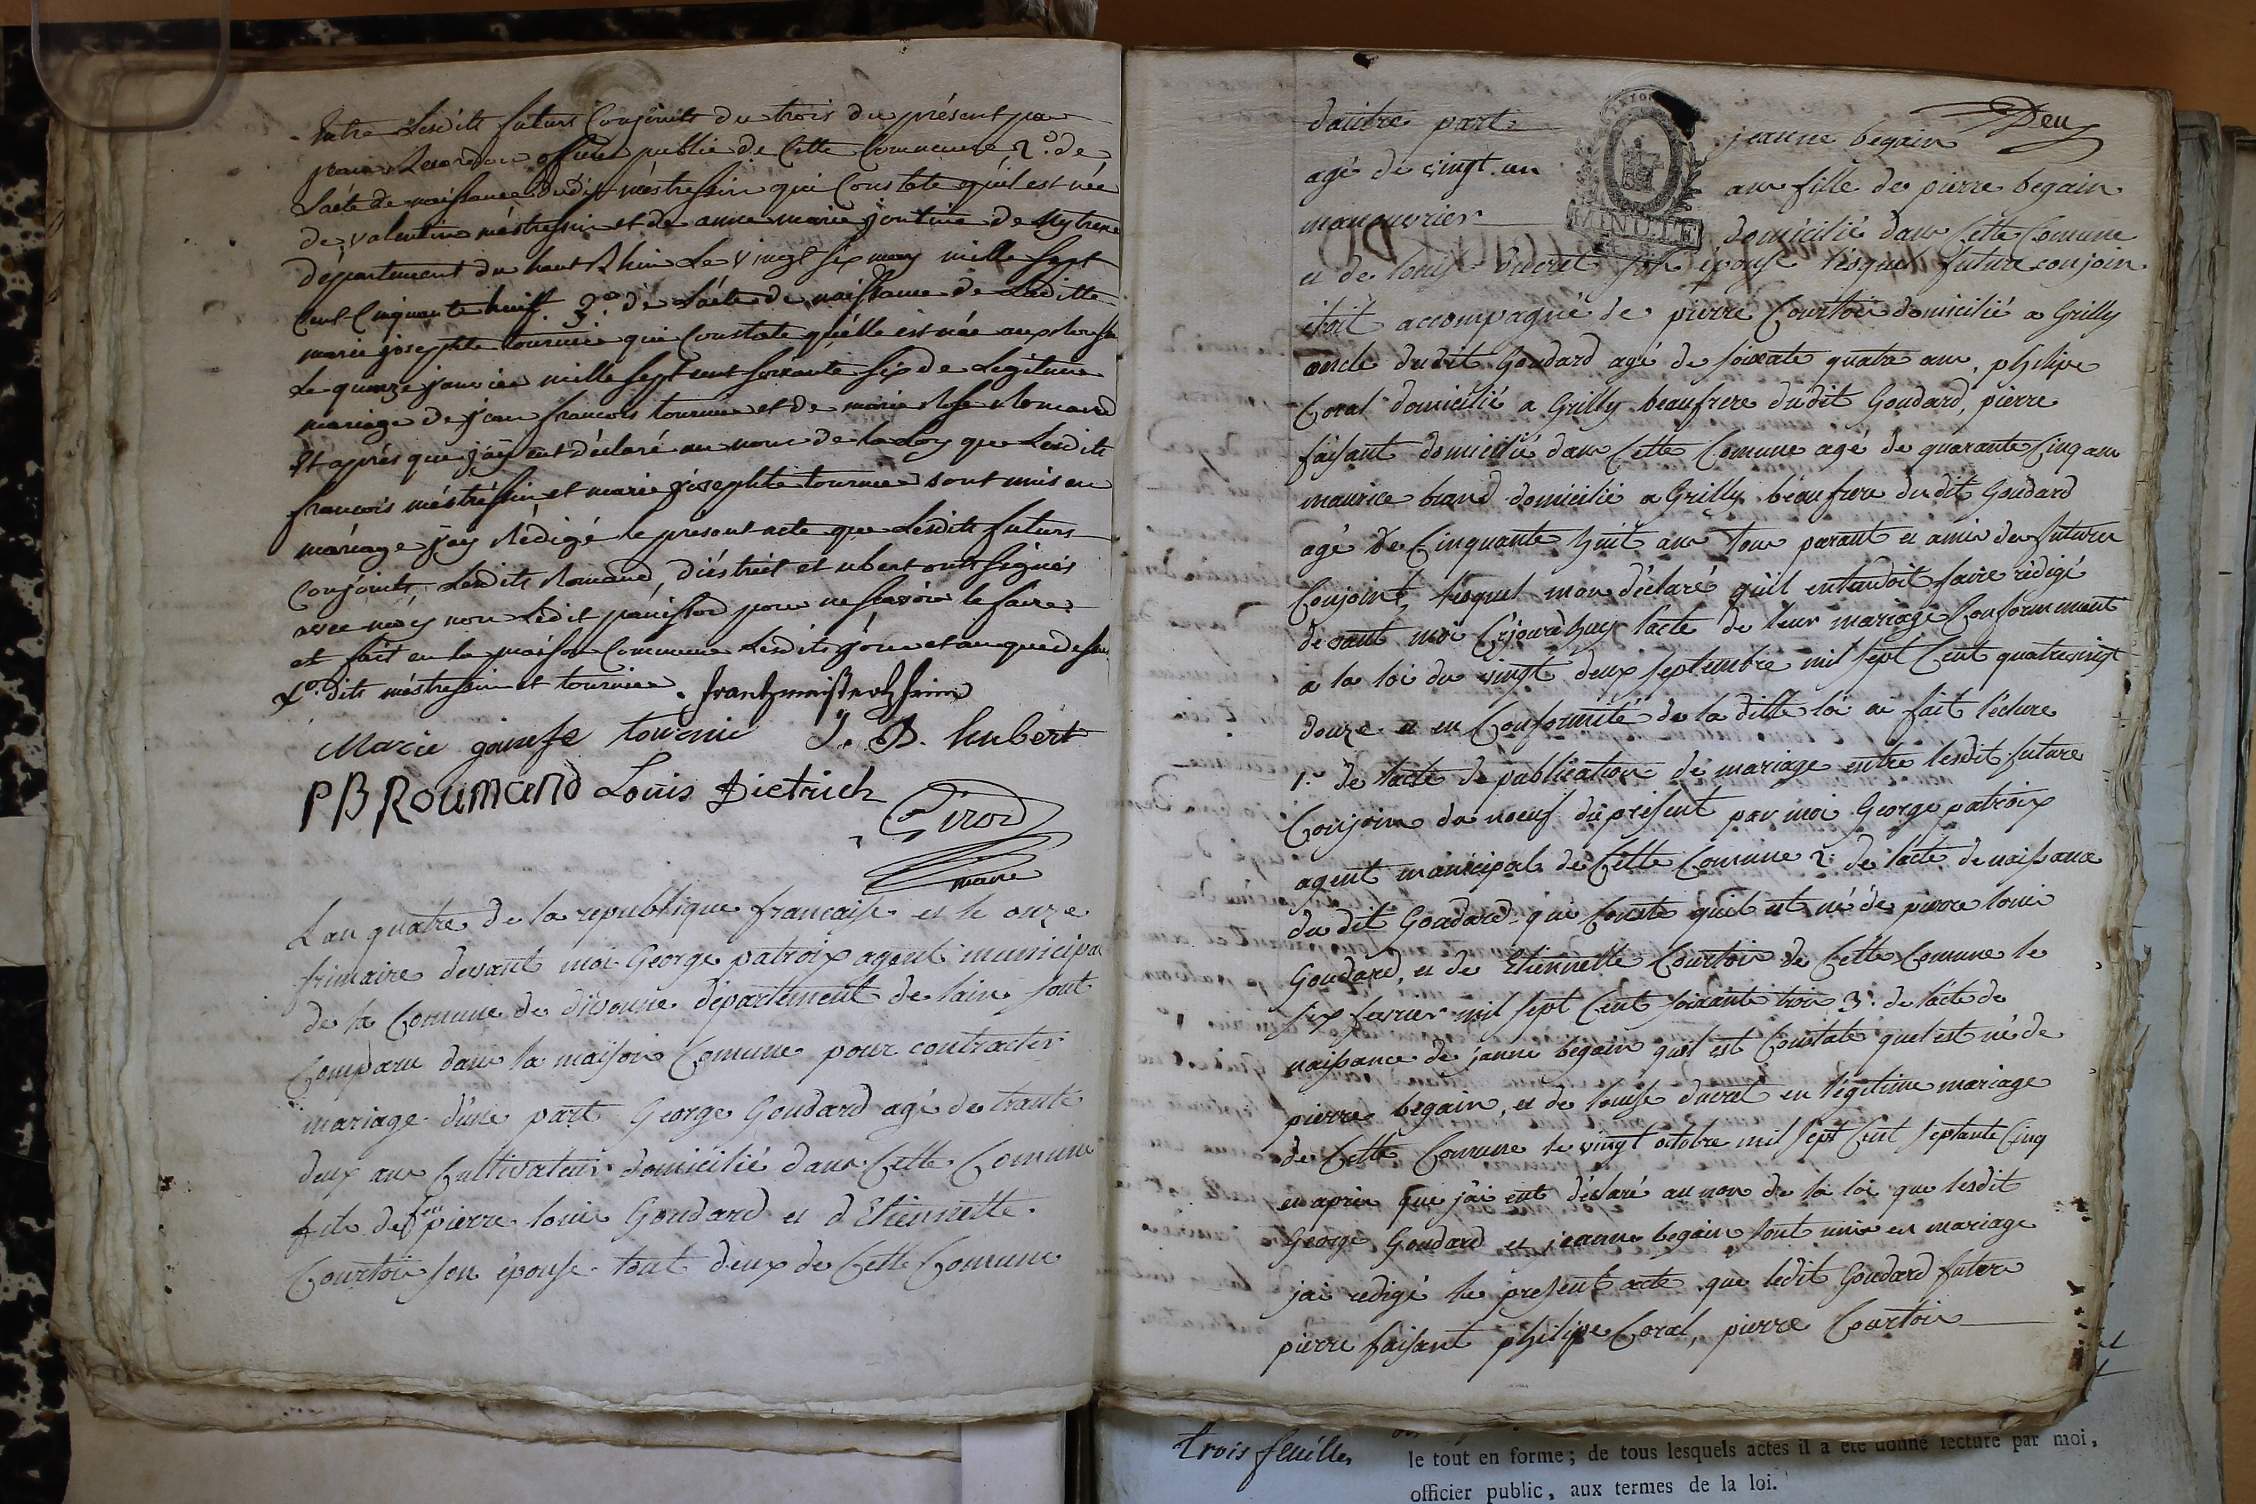 Entre Lesdits futurs Conjoints du trois du présent par
officier public de Cette Commune 2.° de
L'acte de naissance dudit méstressin qui Constate qu'il est née
de valentin méstressin et de anne marie de
département du haut Rhin Le vingt six may mille sept
Cent Cinquante huit. 3.° de L'acte de naissance de Laditte
marie josephte tournier qui Constate qu'elle est née
Le quinze janvier mille sept cent soixante six de Légitime
mariage de jean francois tournier et de marie Rose Romand
Et après que j'ay eut déclaré au nom de la Loy que Lesdits
francois méstréssin et marie josephte tournier sont unis en
máriage j'ay Rédigé le présent acte que Lesdits futurs
Conjoints Lesdits Romand, diéstrict et ubert ont signés
avec moy non Ledit pour ne scavoir le faire
et fait en la maison Commune Lesdits jour et an que dessus
dits méstressin et tournier. frantz meistertzheim
Marie gosephe tournie J. B. hubert
PB Roumand Louis Dietrich
Girod
maire
L'an quatre de la republique francaise et le onze
frimaire devant moi George patroix agent municipal
de la Comune de divonne département de l'ain sont
Comparu dans la maison Comune pour contracter
mariage d'une part George Goudard agé de trante
deux ans Cultivateur domicilié dans Cette Comune
fils de feu pierre louis Goudard et d'Etiennette
Courtois son épouse tout deux de Cette Comune
Deux
d'autre part jeanne begain
agé de vingt un ans fille de pierre begain
MINUTE
manouvrier domicilié dans Cette Comune
et de louise ducret son épouse lesquel futurs conjoin
étoit accompagné de pierre Courtois domicilié a Grilly
oncle dudit Goudard agé de soixate quatre ans, philipe
Coral domicilié a Grilly beaufrere dudit Goudard, pierre
faisant domicilié dans Cette Comune agé de quarante Cinq ans
maurice brand domicilié a Grilly beaufrere dudit Goudard
agé de Cinquante huit ans tous parant et amis des futures
Conjoint, lesquel m'on déclaré quil entendoit faire rédigé
devant moi Cejourdhuy l'acte de leur mariage Conformement
a la loi du vingt deux septembre mil sept Cent quatrevingt
douze et en Conformité de la ditte loi ai fait lécture
1.° de l'acte de publication de mariage entre lesdit future
Conjoins du noeuf du présent par moi George patroix
agent municipal de Cette Comune 2.° de l'acte de naissance
du dit Goudard qui Conste quil et né de pierre louis
Goudard, et de Etiennette Courtois de Cette Comune le
six fevrier mil sept Cent soixante trois 3.° de l'acte de
naissance de janne begain quel est Constate quel est né de
pierre begain, et de louise ducret en légitime mariage
de Cette Comune le vingt octobre mil sept Cent septante Cinq
en apres que j'ai eut déclaré au nom de la loi que lesdit
George Goudard et jeanne begain sont unis en mariage
jai redigé le present acte que ledit Goudard future
pierre faisant philipe Coral, pierre Courtois
trois feuilles
le tout en forme; de tous lesquels actes il a été donné lecture par moi,
officier public, aux termes de la loi.